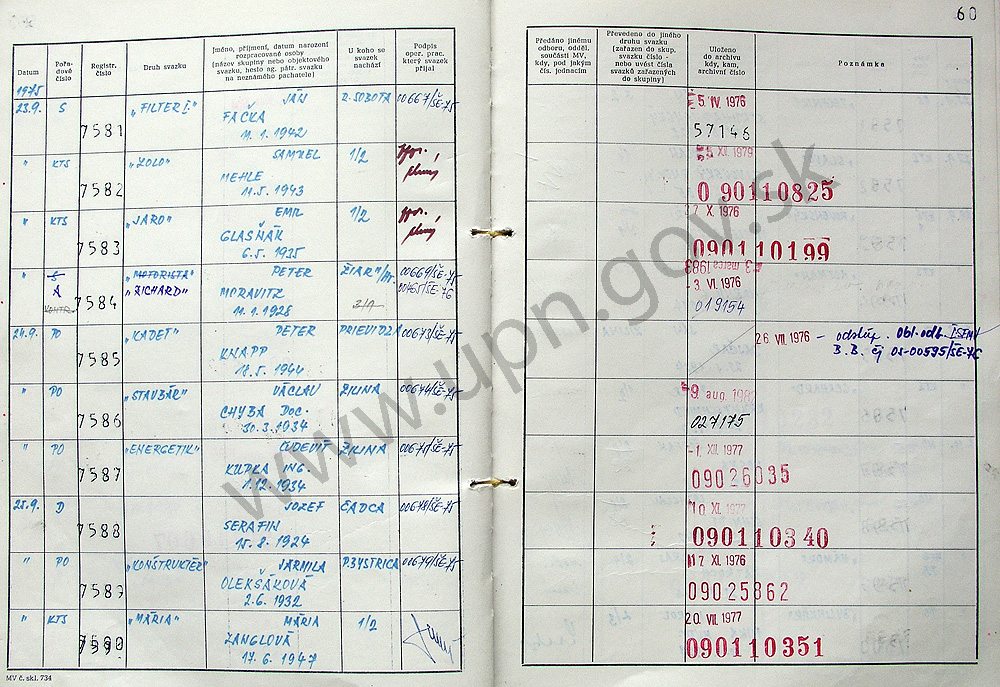 60
Datum
Pořadové číslo
Registr. číslo
Druh svazku
Jméno, příjmení, datum narození
rozpracované osoby
(název skupiny nebo objektového
svazku, heslo ag. pátr. svazku
na neznámého pachatele)
U koho se
svazek
nachází
Podpis
oper. prac.
který svazek
přijal
Předáno jinému
odboru, odděl.
součásti MV,
kdy, pod jakým
čís. jednacím
Převedeno do jiného
druhu svazku
(zařazen do skup.
svazku číslo -
nebo uvést čísla
svazků zařazených
do skupiny)
Uloženo
do archivu
kdy, kam,
archivní číslo
Poznámka
1975
23.9. S 7581 "FILTER I." JÁN R. SOBOTA 00667/ŠE-75 5. IV. 1976
FAČKA
11. 1. 1942 57146
" KTS 7582 "LOLO" SAMUEL 1/2 XII 1979
MEHLE
11.5. 1943 0 90110825
" KTS 7583 "JARO" EMIL 1/2 X. 1976
GLASŇÁK
6.5. 1935 090110199
" S "MOTORISTA" PETER ŽIAR 00669/ŠE-75 3. marca 1983
A 7584 "RICHARD" MORAVITZ 00465/ŠE-76 -3. VI. 1976
KONTR. 11.1. 1928 019154
24.9. PO 7585 "KADET" PETER PRIEVIDZA 00673/ŠE-75 26 VII. 1976 — odstúp. Obl. odb.
KNAPP B.B. čj 0S-00595/ŠE-76
18.5. 1944
" PO 7586 "STAVBÁR" VÁCLAV ŽILINA 00674/ŠE-75 9. aug. 198
CHYBA DOC.
30.3. 1934 027175
" PO 7587 "ENERGETIK" ĽUDEVIT ŽILINA -1. XII. 1977
KUPKA ING.
1.12. 1934 09026035
25.9. D 7588 JOZEF ČADCA 00678/ŠE-75 10 XI. 1977
SERAFIN
15. 8. 1924 090110340
" PO 7589 "KONŠTRUKTÉR" JARMILA P. BYSTRICA 00679/ŠE-75 XI. 1976
OLEKŠÁKOVÁ
2.6. 1932 09025862
" KTS 7590 "MÁRIA" MÁRIA 1/2 20. VII. 1977
ŽANGLOVÁ
17. 6. 1947 090110351
MV č. skl. 734
www.upn.gov.sk